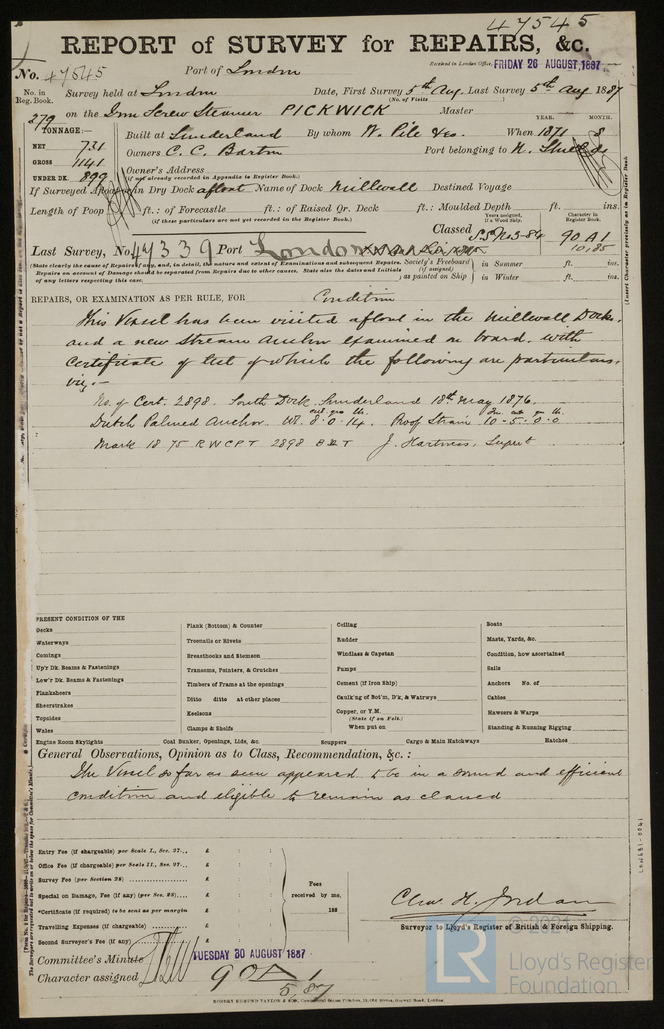 47545
REPORT of SURVEY for REPAIRS, &c.
No. 47545 Port of London Received in London Office, FRIDAY 26 AUGUST, 1887
No. in Reg. Book. Survey held at London Date, First Survey 5th Aug. Last Survey 5th Aug 1887
(No. of Visits )
279 on the Iron Screw Steamer PICKWICK Master
TONNAGE:— YEAR. MONTH.
NET 731 Built at Sunderland By whom W. Pile & Co. When 1871 8
GROSS 1141 Owners C. C. Barton Port belonging to N. Shields
UNDER DK. 899 Owner's Address
(if not already recorded in Appendix to Register Book.)
If Surveyed Afloat or in Dry Dock afloat Name of Dock Millwall Destined Voyage
Length of Poop ft.: of Forecastle ft.: of Raised Qr. Deck ft.: Moulded Depth ft. ins.
(if these particulars are not yet recorded in the Register Book.)
Years assigned, if a Wood Ship. Character in Register Book.
Classed S.S. No 3-84 90 A1
10,85
Last Survey, No. 47339 Port London
(State clearly the cause of Repairs if any, and, in detail, the nature and extent of Examinations and subsequent Repairs.
Repairs on account of Damage should be separated from Repairs due to other causes. State also the dates and Initials
of any letters respecting this case.)
Society's Freeboard (if assigned) as painted on Ship
in Summer ft. ins.
in Winter ft. ins.
REPAIRS, OR EXAMINATION AS PER RULE, FOR Condition
This Vessel has been visited afloat in the Millwall Docks,
and a new Stream Anchor examined on board, with
Certificate of test of which the following are particulars,
viz,—
No. of Cert. 2898. South Dock, Sunderland 18th May 1876.
cwt. qrs. lbs. Tns. cwt. qr. lb.
Dutch Palmed Anchor. Wt. 8.0.14. Proof Strain 10-5.0.0
Mark 18 75 RWCPT 2898 J. Hartness, Supert
PRESENT CONDITION OF THE
Decks
Waterways
Comings
Up'r Dk. Beams & Fastenings
Low'r Dk. Beams & Fastenings
Planksheers
Sheerstrakes
Topsides
Wales
Engine Room Skylights
Plank (Bottom) & Counter
Treenails or Rivets
Breasthooks and Stemson
Transoms, Pointers, & Crutches
Timbers of Frame at the openings
Ditto ditto at other places
Keelsons
Clamps & Shelfs
Coal Bunker, Openings, Lids, &c.
Ceiling
Rudder
Windlass & Capstan
Pumps
Cement (if Iron Ship)
Caulk'ng of Bot'm, D'k, & Watrwys
Copper, or Y.M.
(State if on Felt.)
When put on
Scuppers
Cargo & Main Hatchways
Boats
Masts, Yards, &c.
Condition, how ascertained
Sails
Anchors No. of
Cables
Hawsers & Warps
Standing & Running Rigging
Hatches
General Observations, Opinion as to Class, Recommendation, &c.:
The Vessel so far as seen appeared to be in a sound and efficient
condition and eligible to remain as classed
Entry Fee (if chargeable) per Scale I., Sec. 27... £ : :
Office Fee (if chargeable) per Scale II., Sec. 27... £ : :
Survey Fee (per Section 28) £ : :
Special on Damage, Fee (if any) (per Sec. 28).... £ : :
*Certificate (if required) to be sent as per margin £ : :
Travelling Expenses (if chargeable) £ : :
Second Surveyor's Fee (if any) £ : :
Fees received by me,
188
Chas. H. Jordan
Surveyor to Lloyd's Register of British & Foreign Shipping.
Committee's Minute TUESDAY 30 AUGUST 1887
Character assigned 90 A 1
5,87
© 2021
LR
Lloyd's Register
Foundation